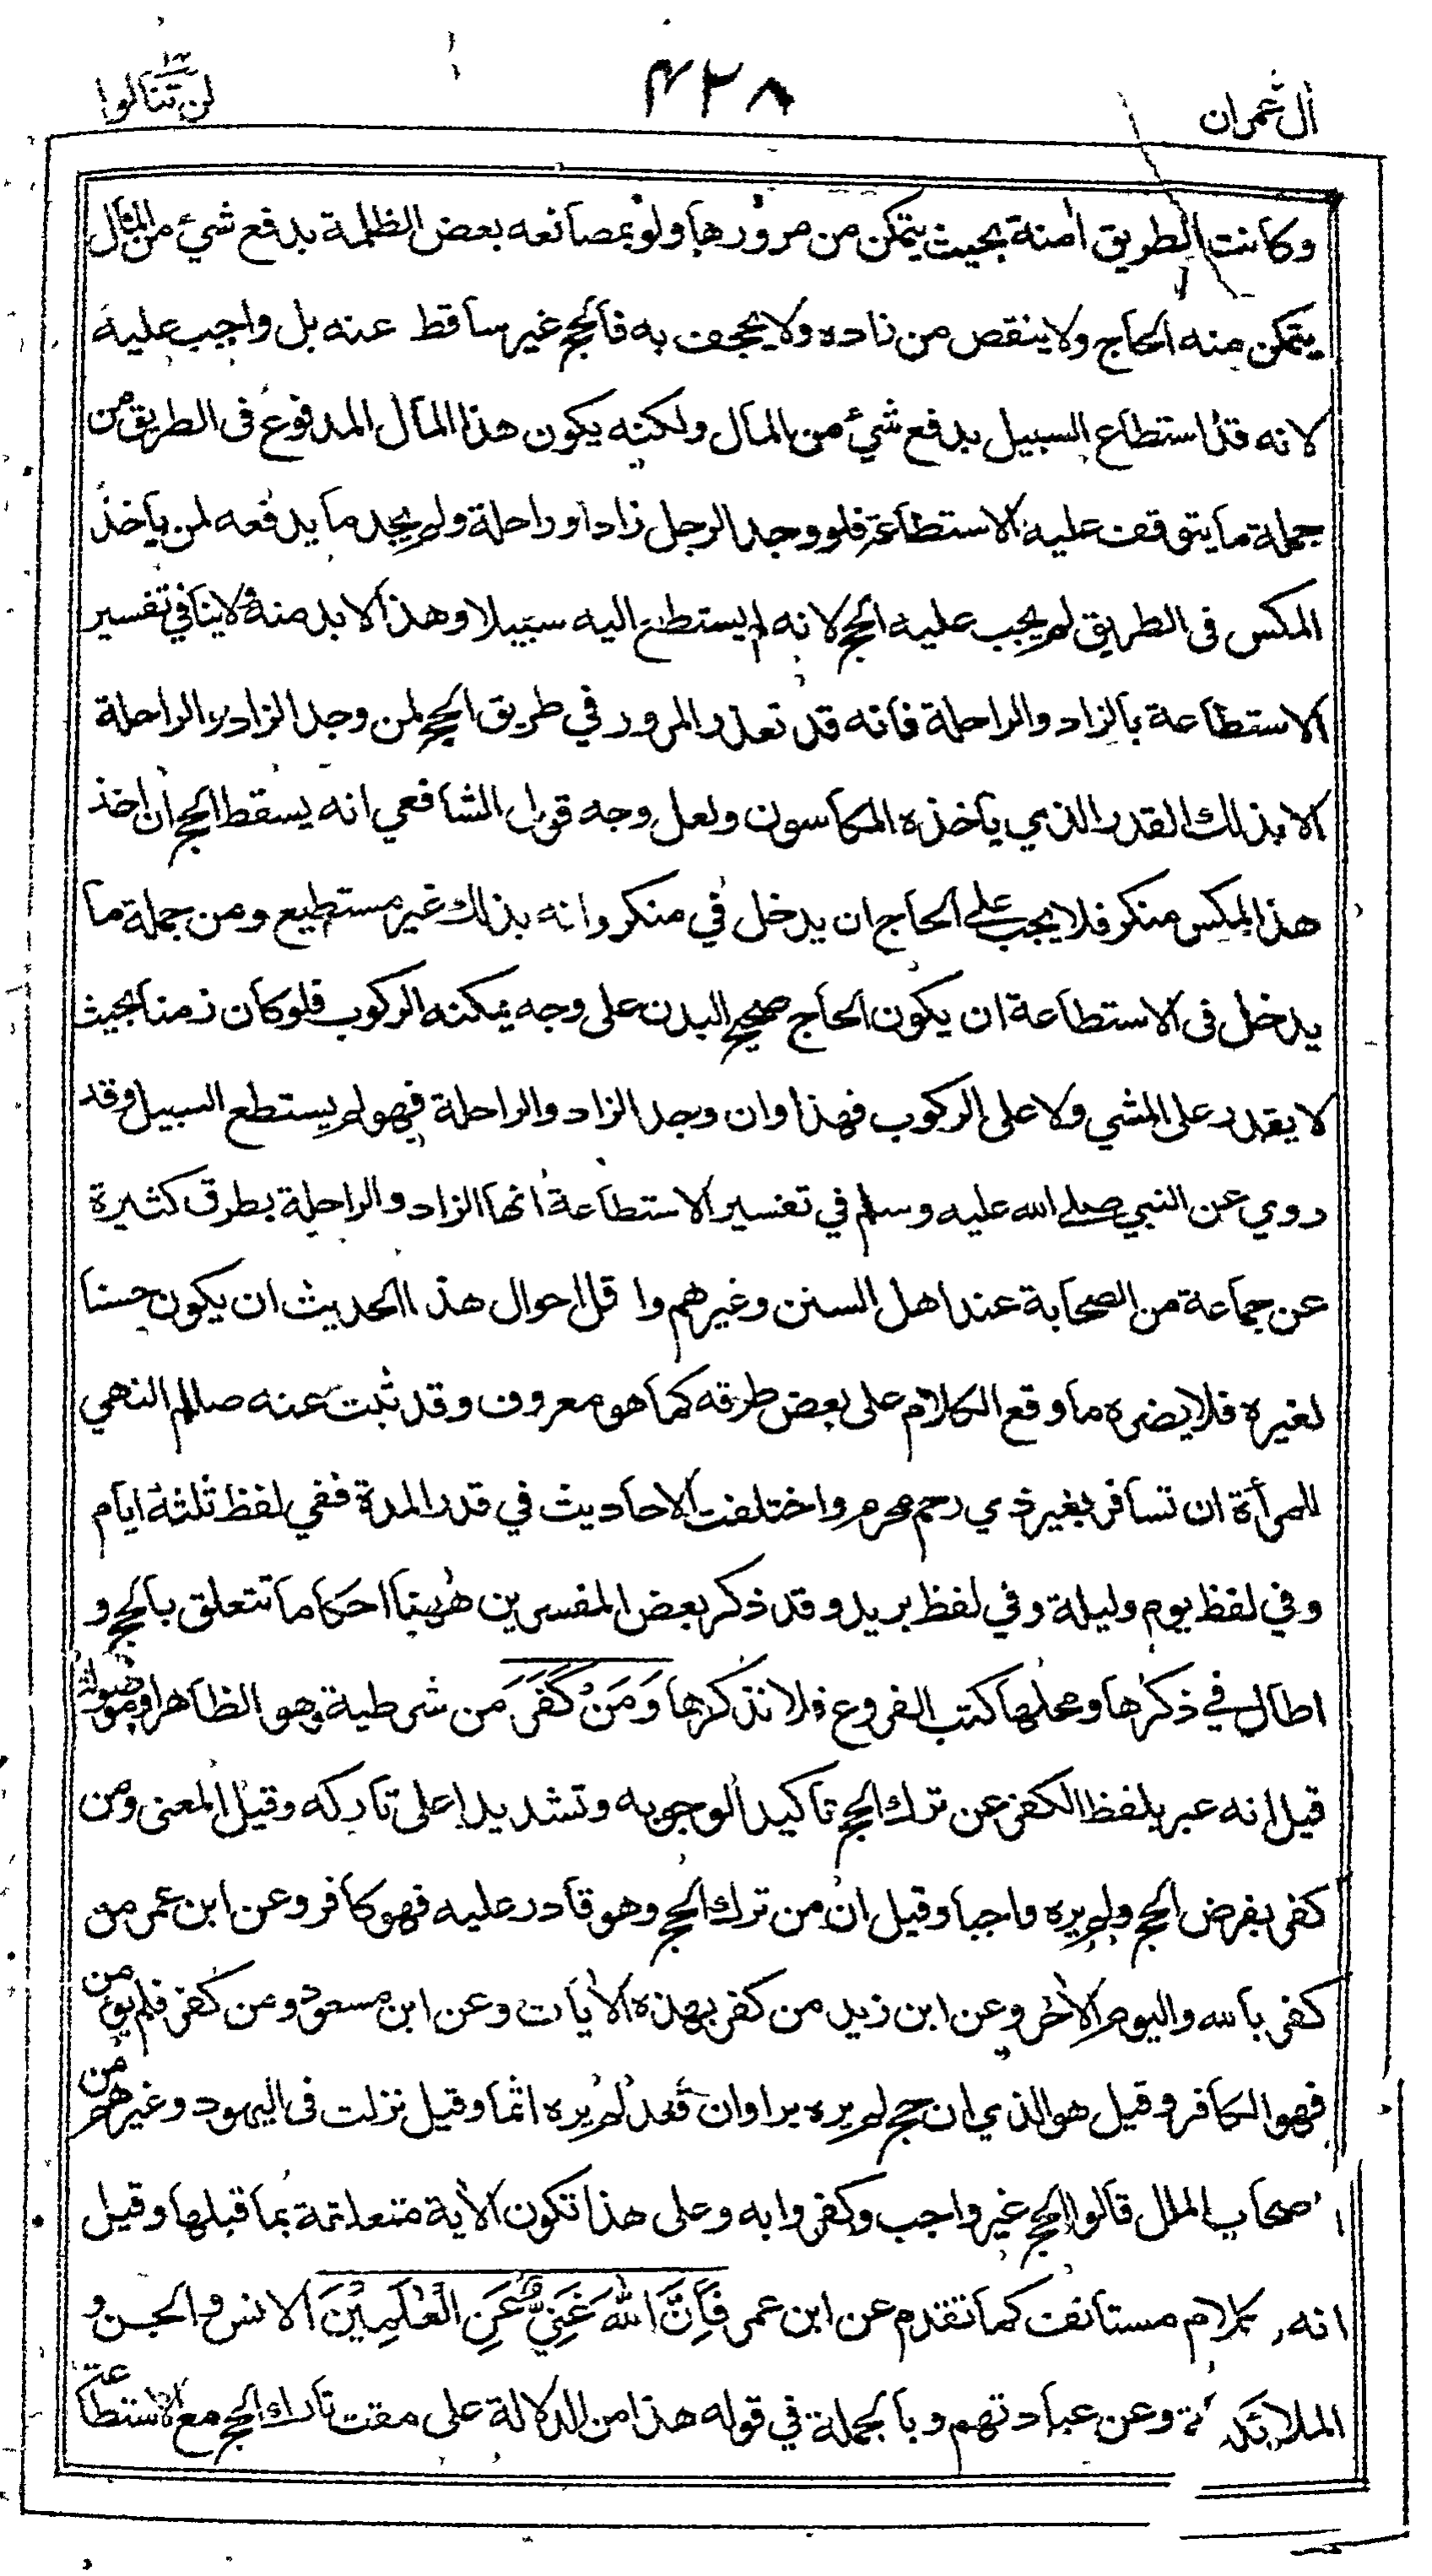 اٰل عمران
۴۲۸
لن تنالوا
وكانت الطريق اٰمنة بحيث يتمكن من مرورها ولو بمصانعه بعض الظلمة بدفع شئ من المال
يتمكن منه الحاج ولا ينقص من زاده ولا يجحف به فالحج غير ساقط عنه بل واجب عليه
لانه قد استطاع السبيل بدفع شئ من المال ولكنه يكون هذا المال المدفوع فى الطريق من
جملة ما يتوقف عليه الاستطاعة فلو وجد الرجل زادا وراحلة ولم يجد ما يدفعه لمن يأخذ
المكس فى الطريق لم يجب عليه الحج لانه لم يستطع اليه سبيلا وهذا لا بد منه ولا ينافي تفسير
الاستطاعة بالزاد والراحلة فانه قد تعذر المرور في طريق الحج لمن وجد الزاد والراحلة
الا بذلك القدر الذي يأخذه المكاسون ولعل وجه قول الشافعي انه يسقط الحج ان اخذ
هذا المكس منكر فلا يجب على الحاج ان يدخل في منكر وانه بذلك غير مستطيع ومن جملة ما
يدخل فى الاستطاعة ان يكون الحاج صحيح البدن على وجه يمكنه الركوب فلو كان زمنا بحيث
لا يقدر على المشي ولا على الركوب فهذا وان وجد الزاد والراحلة فهو لم يستطع السبيل وقد
روي عن النبي صلى الله عليه وسلم في تفسير الاستطاعة انها الزاد والراحلة بطرق كثيرة
عن جماعة من الصحابة عند اهل السنن وغيرهم واقل احوال هذا الحديث ان يكون حسنا
لغيره فلا يضره ما وقع الكلام على بعض طرقه كما هو معروف وقد ثبت عنه صللم النهي
للمرأة ان تسافر بغير ذي رحم محرم واختلفت الاحاديث في قدر المدة ففي لفظ ثلثة ايام
وفي لفظ يوم وليلة وفي لفظ بريد وقد ذكر بعض المفسرين هٰهنا احكاما تتعلق بالحج و
اطال في ذكرها ومحلها كتب الفروع فلا نذكرها وَمَنْ كَفَرَ من شرطية وهو الظاهر او موصولة
قيل انه عبر بلفظ الكفر عن ترك الحج تاكيدا لوجوبه وتشديدا على تاركه وقيل المعنى ومن
كفر بفرض الحج ولم يره واجبا وقيل ان من ترك الحج وهو قادر عليه فهو كافر وعن ابن عمر من
كفر بالله واليوم الاٰخر وعن ابن زيد من كفر بهذه الاٰيات وعن ابن مسعود ومن كفر فلم يؤمن
فهو الكافر وقيل هو الذي ان حج لم يره برا وان قعد لم يره اثما وقيل نزلت فى اليهود وغيرهم من
اصحاب الملل قالوا الحج غير واجب وكفروا به وعلى هذا تكون الاٰية متعلقة بما قبلها وقيل
انه كلام مستانف كما تقدم عن ابن عمر فَاِنَّ اللّٰهَ غَنِيٌّ عَنِ الْعٰلَمِيْنَ الانس والجن و
الملائكة وعن عبادتهم وبالجملة في قوله هذا من الدلالة على مقت تارك الحج مع الاستطاعة